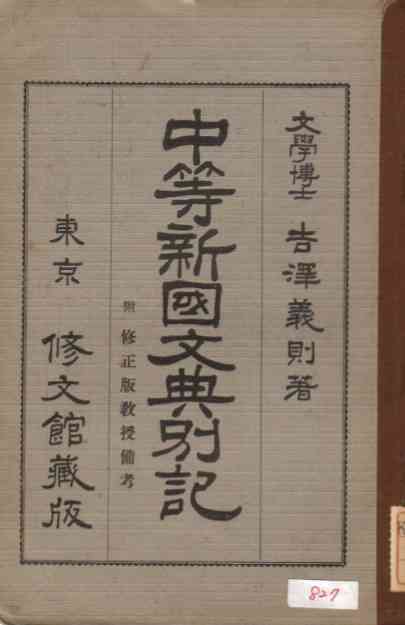 文學博士 吉澤義則著
中等新國文典別記
附 修正版教授備考
東京 修文館藏版
827